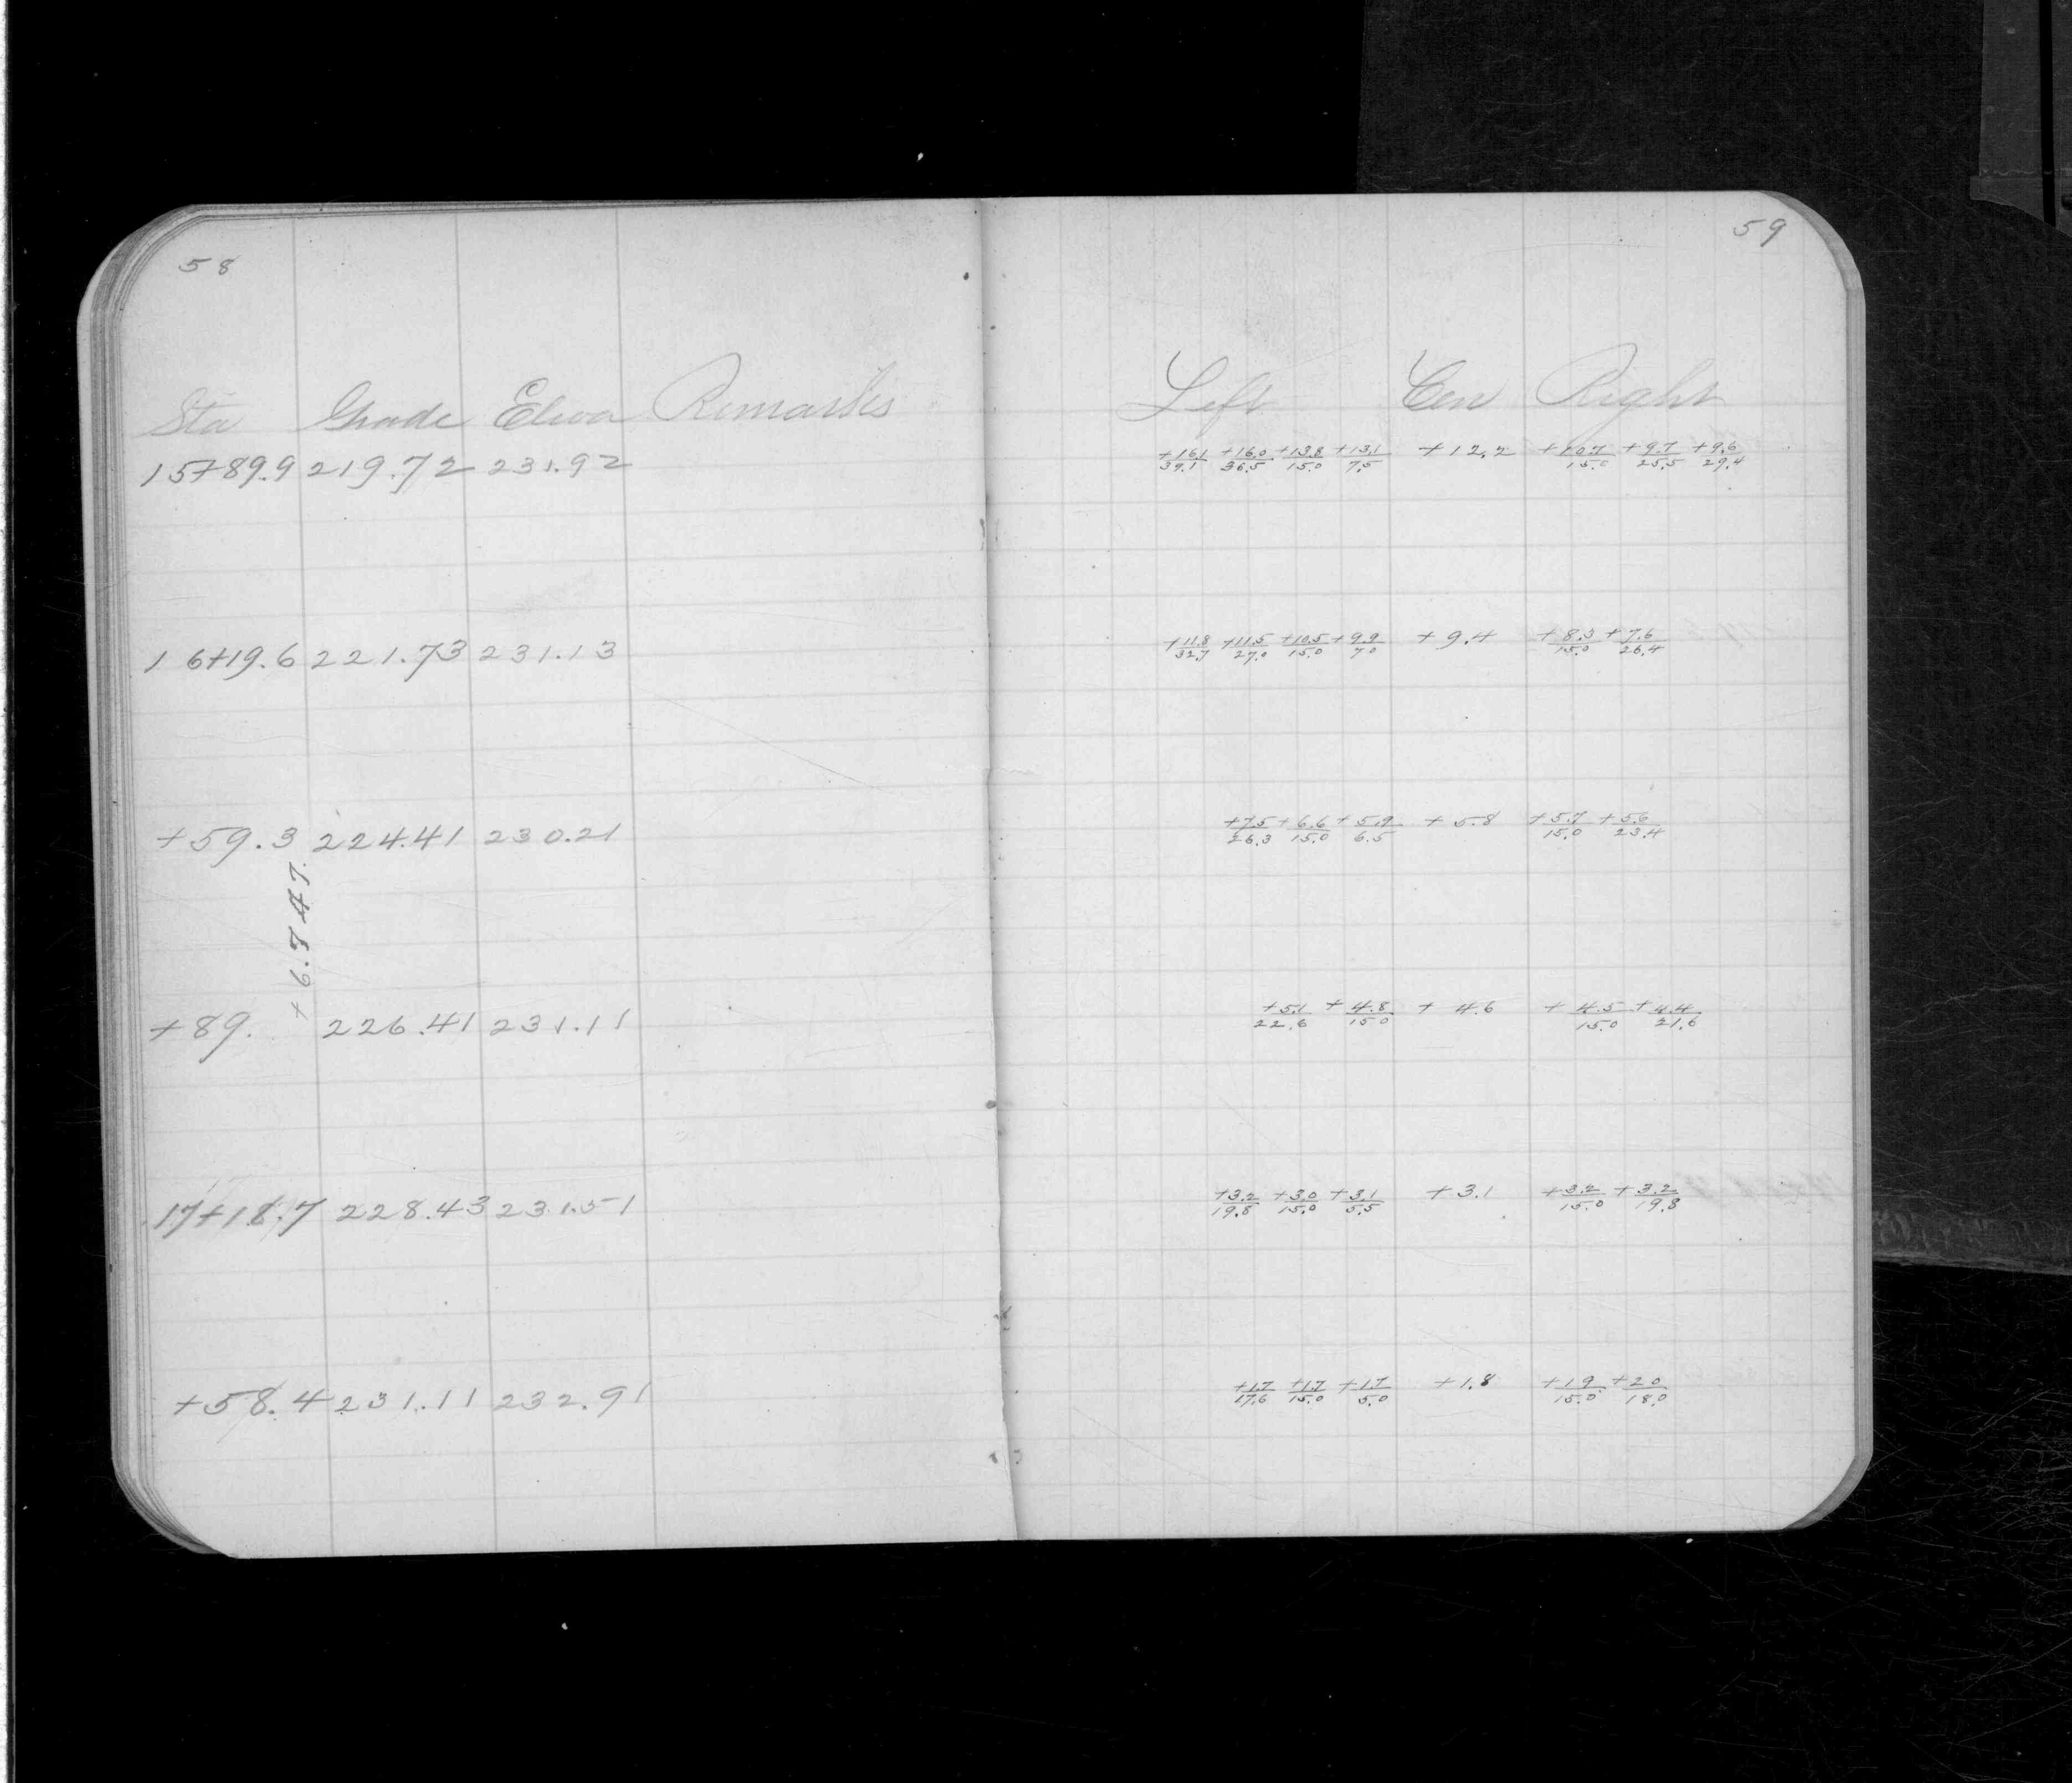 58
Sta Grade Eleva Remarks
15+89.9 219.72 231.92
16+19.6 221.73 231.13
+59.3 224.41 230.21
+6.747
+89. 226.41 231.11
17+18.7 228.43 231.51
+58.4 231.11 232.91
59
Left Cen Right
+16.1/39.1 +16.0/36.5 +13.8/15.0 +13.1/7.5 +12.2 +10.7/15.0 +9.7/25.5 +9.6/29.4
+11.8/32.7 +11.5/27.0 +10.5/15.0 +9.9/70 +9.4 +8.3/15.0 +7.6/26.4
+7.5/26.3 +6.6/15.0 +5.9/6.5 +5.8 +5.7/15.0 +5.6/23.4
+5.1/22.6 +4.8/15.0 +4.6 +4.5/15.0 +4.4/21.6
+3.2/19.8 +3.0/15.0 +3.1/5.5 +3.1 +3.2/15.0 +3.2/19.8
+1.7/17.6 +1.7/15.0 +1.7/5.0 +1.8 +1.9/15.0 +2.0/18.0